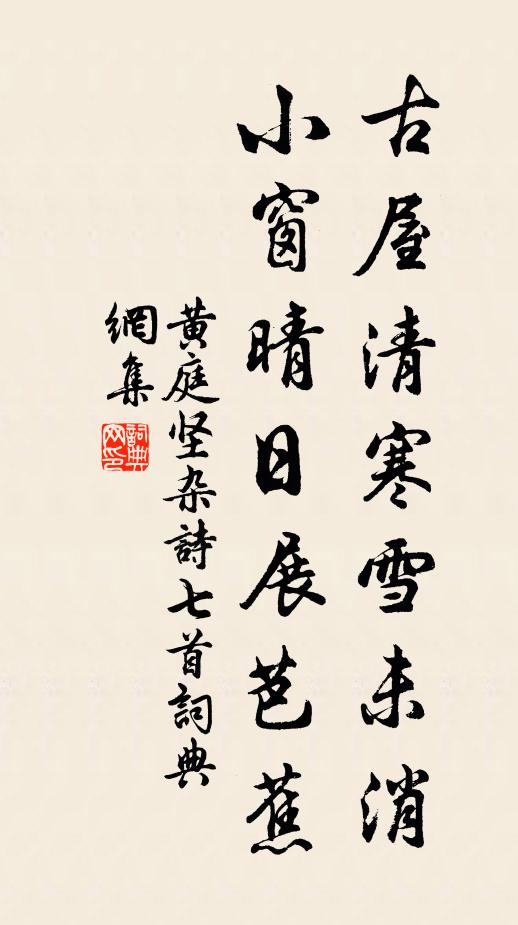 古屋清寒雪未消
小窗晴日展芭蕉
黄庭坚杂詩七首詞典
網集
詞典网印